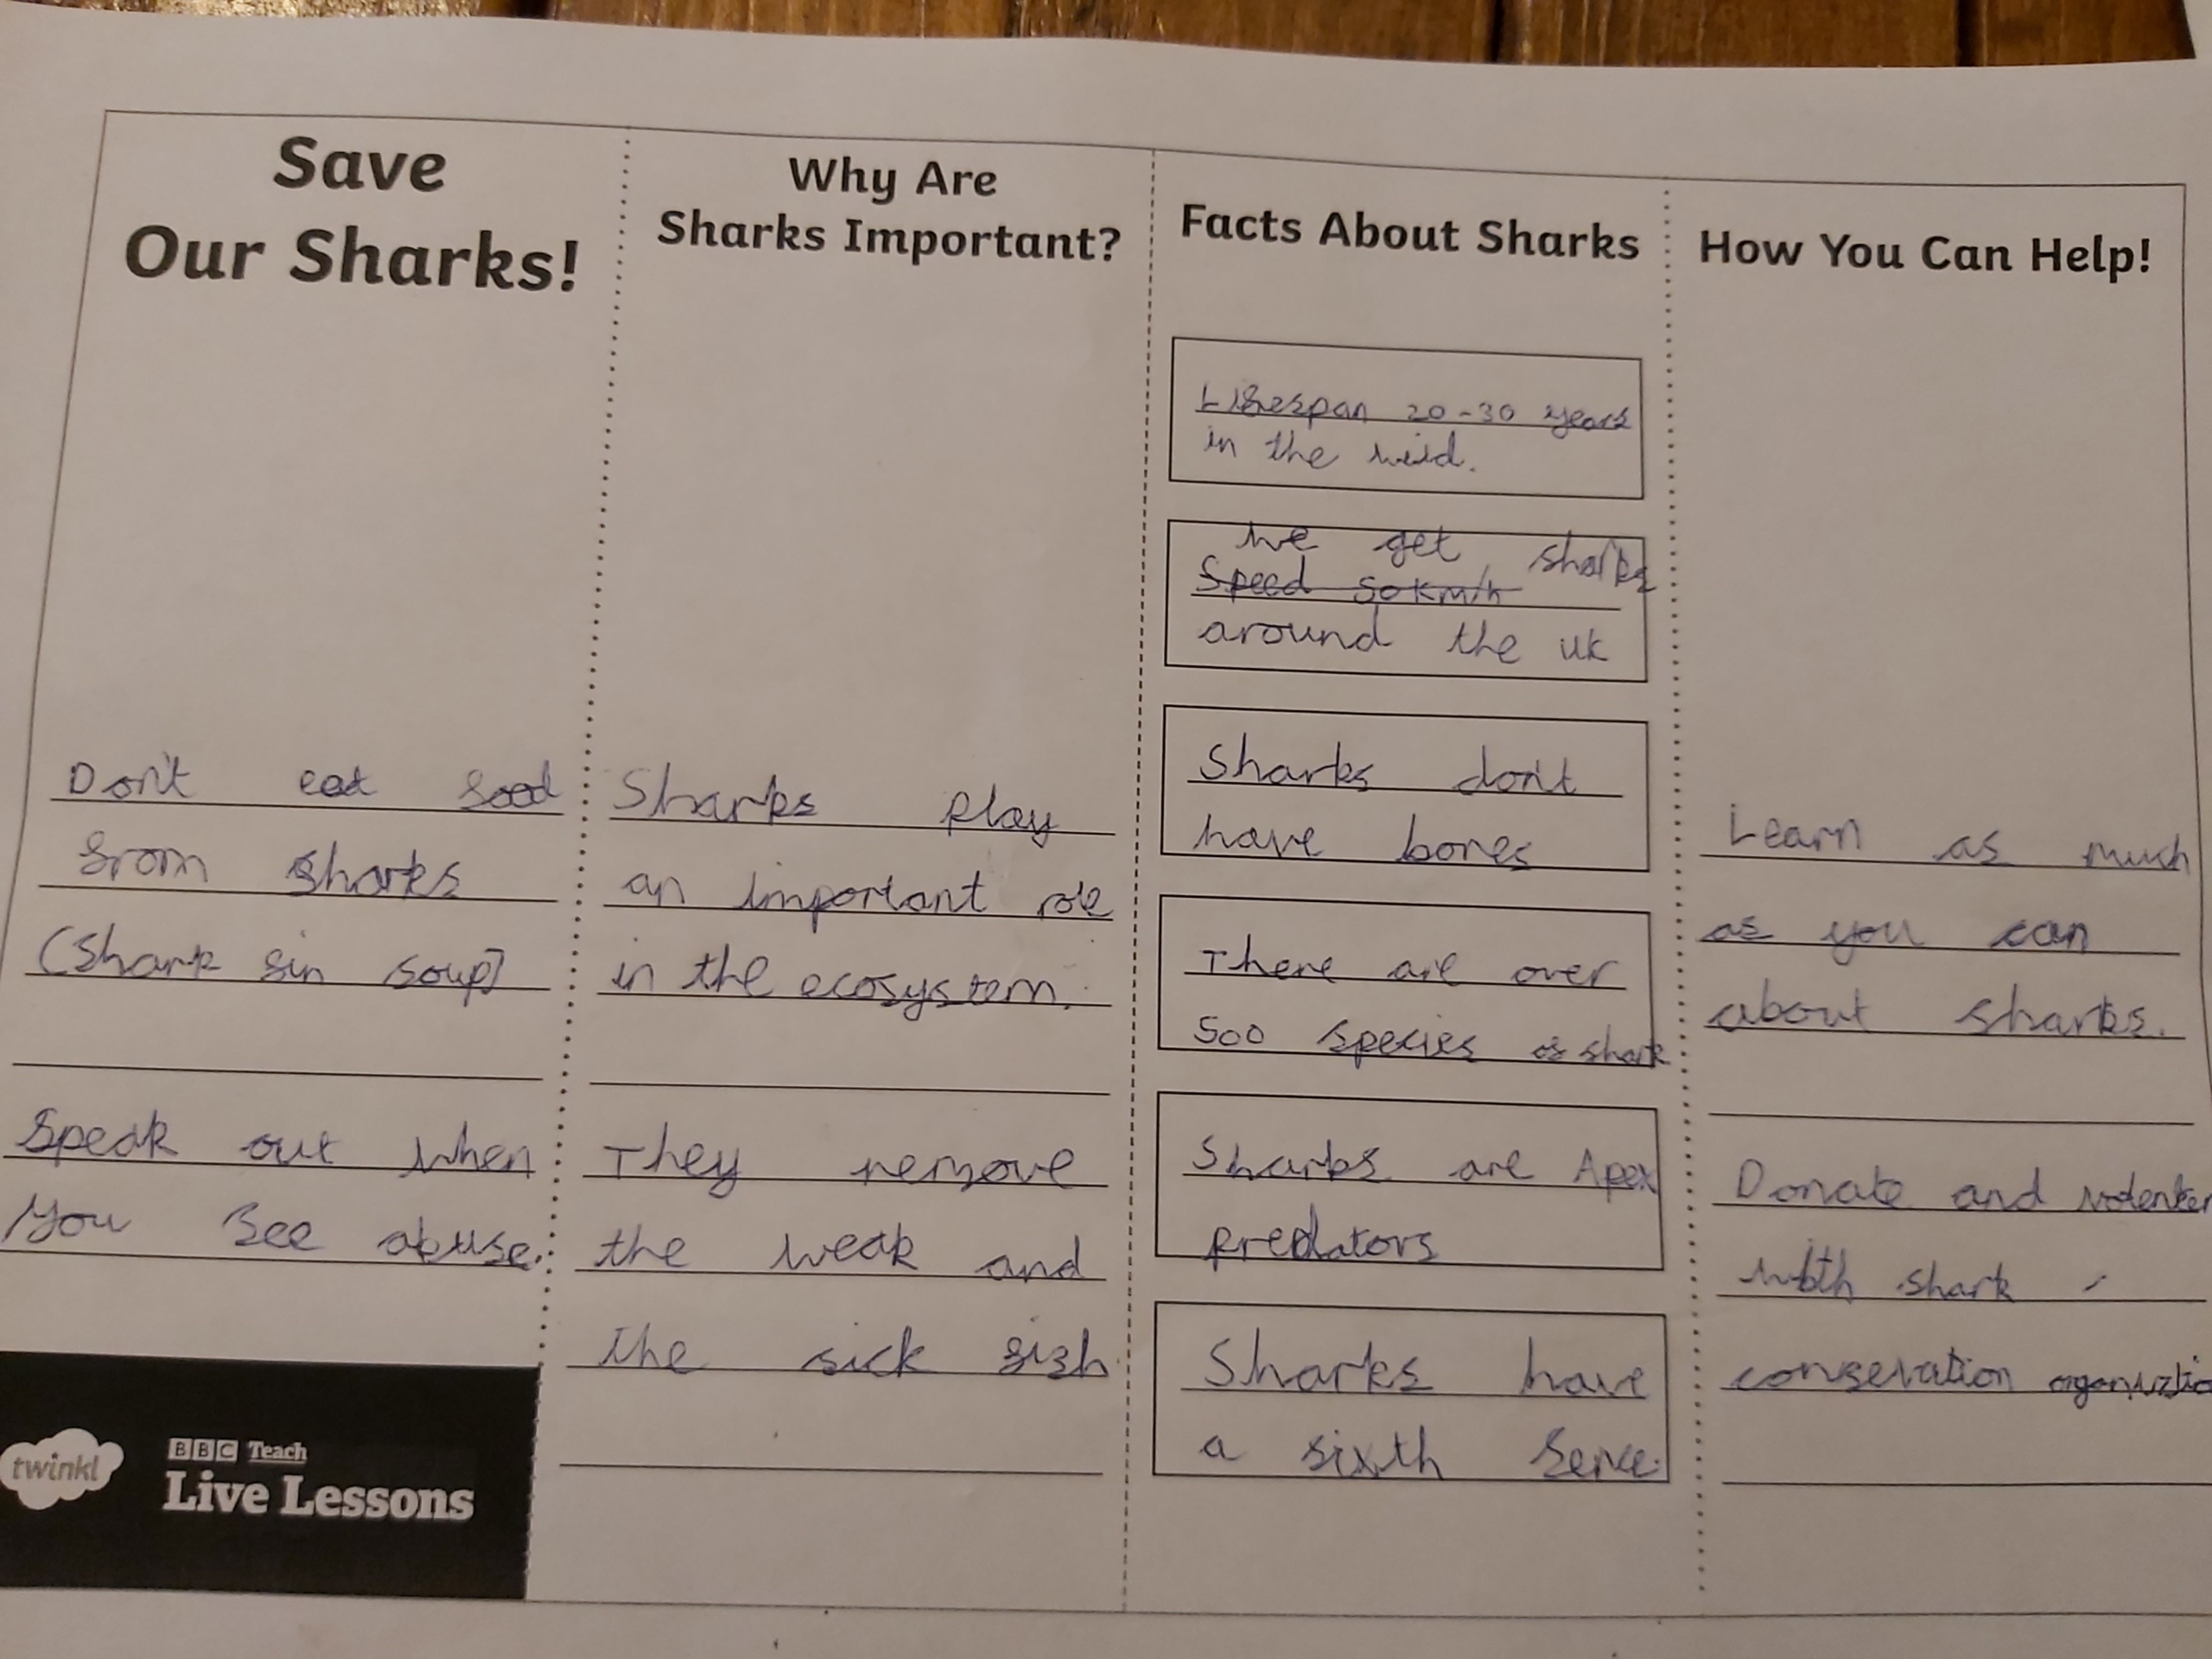 Save
Our Sharks!
Don't eat food
from sharks
(Shark fin soup)
Speak out when
you see abuse.
twinkl
BBC Teach
Live Lessons
Why Are
Sharks Important?
Sharks play
an important role
in the ecosystem.
They remove
the weak and
the sick fish
Facts About Sharks
Lifespan 20-30 years
in the wild.
we get sharks
Speed 50km/h
around the uk
Sharks don't
have bones
There are over
500 species of shark
Sharks are Apex
predators
Sharks have
a sixth sence.
How You Can Help!
Learn as much
as you can
about sharks.
Donate and
with shark
consevation